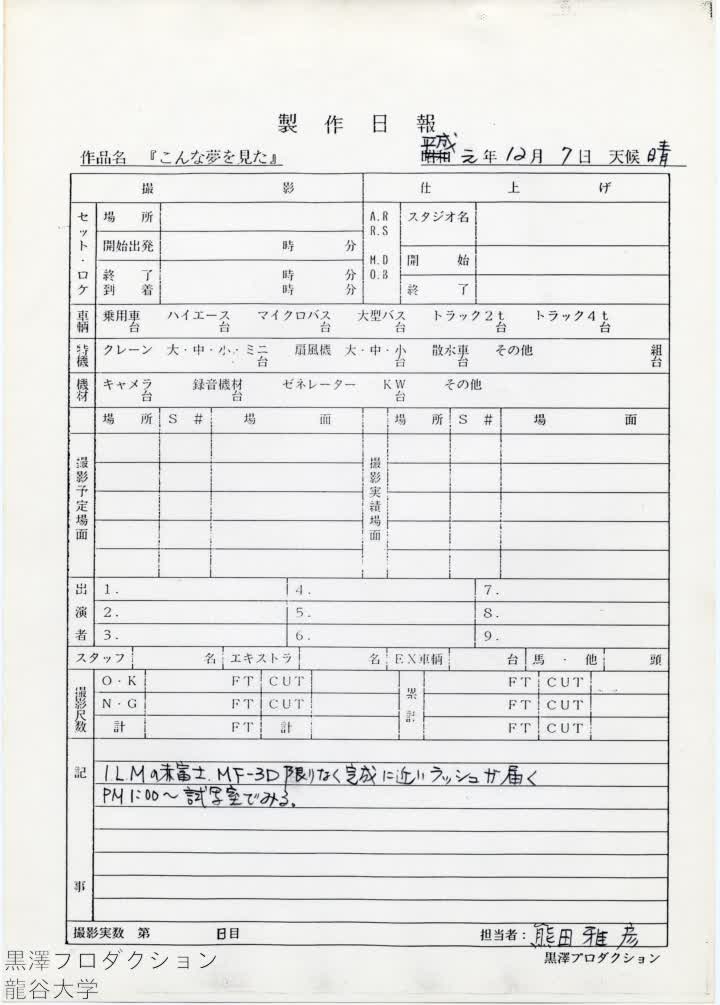 製作日報
作品名 『こんな夢を見た』 平成 昭和 元年 12月 7日 天候 晴
撮影 仕上げ
セット・ロケ 場所 A.R R.S スタジオ名
開始出発 時 分 M.D O.B 開始
終了 時 分 終了
到着 時 分
車輌 乗用車 台 ハイエース 台 マイクロバス 台 大型バス 台 トラック2t 台 トラック4t 台
特機 クレーン 大・中・小・ミニ 台 扇風機 大・中・小 台 散水車 台 その他 組 台
機材 キャメラ 台 録音機材 台 ゼネレーター KW 台 その他
場所 S # 場面 場所 S # 場面
撮影予定場面 撮影実績場面
出演者 1. 4. 7.
2. 5. 8.
3. 6. 9.
スタッフ 名 エキストラ 名 EX車輌 台 馬・他 頭
撮影尺数 O・K FT CUT 累計 FT CUT
N・G FT CUT FT CUT
計 FT 計 FT CUT
記事
I.L.Mの赤富士.MF-3D 限りなく完成に近いラッシュが届く
PM1:00〜試写室でみる。
撮影実数 第 日目 担当者:熊田雅彦
黒澤プロダクション
黒澤プロダクション
龍谷大学